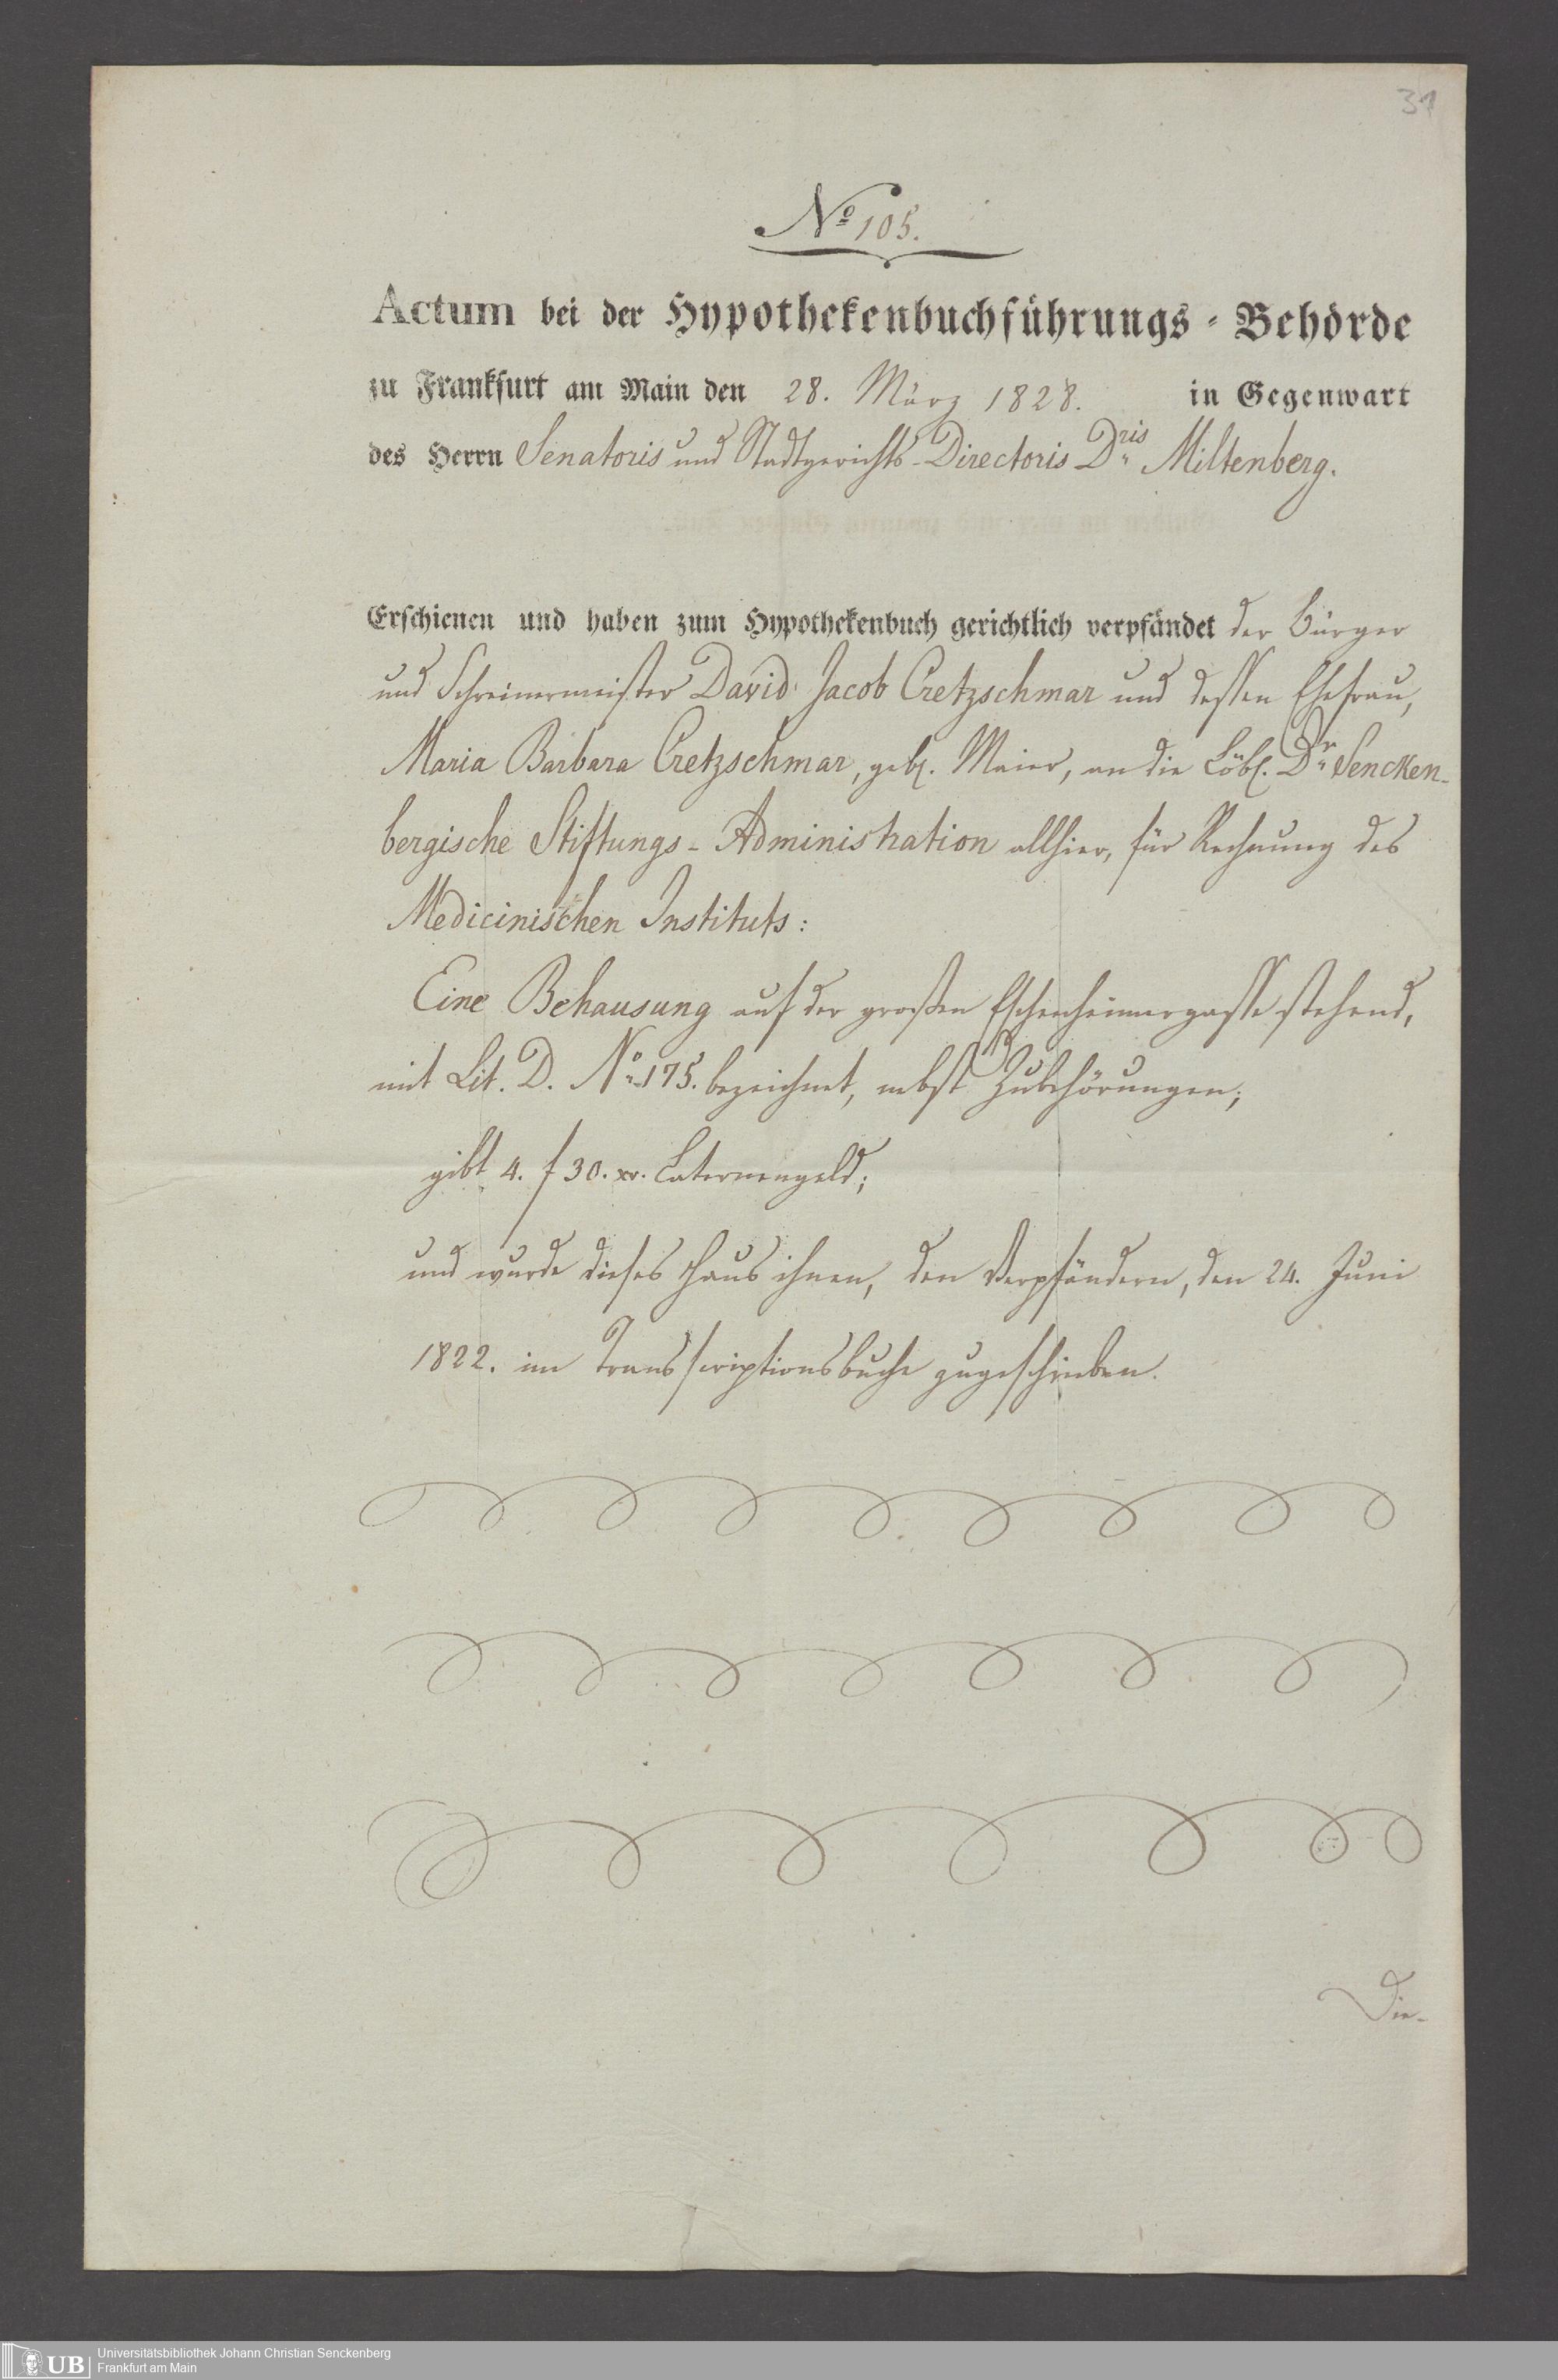 31
No 105.
Actum bei der Hypothekenbuchführungs-Behörde
zu Frankfurt am Main den 28. März 1828. in Gegenwart
des Herrn Senatoris und Stadtgerichts-Directoris Dris Miltenberg.
Erschienen und haben zum Hypothekenbuch gerichtlich verpfändet der Bürger
und Schreinermeister David Jacob Cretzschmar und dessen Ehefrau,
Maria Barbara Cretzschmar, geb. Maier, an die Löbl. Dr Sencken-
bergische Stiftungs-Administration allhier, für Rechnung des
Medicinischen Instituts:
Eine Behausung auf der großen Eschenheimergasse stehend,
mit Lit. D. No 175. bezeichnet, nebst Zubehörungen;
gibt 4. f 30. xr. Laternengeld;
und wurde dieses Haus ihnen, den Verpfändern, den 24. Juni
1822. im Transscriptionsbuche zugeschrieben.
Die-
UB
Universitätsbibliothek Johann Christian Senckenberg
Frankfurt am Main